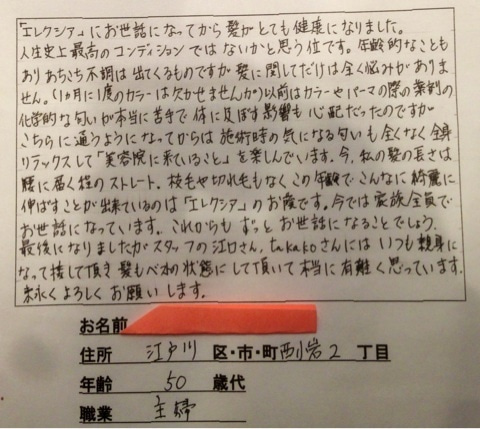 「エレクシア」にお世話になってから髪がとても健康になりました。
人生史上最高のコンディションではないかと思う位です。年齢的なことも
ありあちこち不調は出てくるものですが髪に関してだけは全く悩みがありま
せん。(1ヵ月に1度のカラーは欠かせませんが)以前はカラーやパーマの際の薬剤の
化学的な匂いが本当に苦手で体に及ぼす影響も心配だったのですが
こちらに通うようになってからは施術時の気になる匂いも全くなく全身
リラックスして「美容院に来ていること」を楽しんでいます。今、私の髪の長さは
腰に届く程のストレート。枝毛や切れ毛もなくこの年齢でこんなに綺麗に
伸ばすことが出来ているのは「エレクシア」のお蔭です。今では家族全員で
お世話になっています。これからもずっとお世話になることでしょう。
最後になりましたがスタッフの江口さん、takakoさんにはいつも親身に
なって接して頂き髪もベストの状態にして頂いて本当に有難く思っています。
末永くよろしくお願いします。
お名前
住所 江戸川 区・市・町 西小岩2 丁目
年齢 50 歳代
職業 主婦